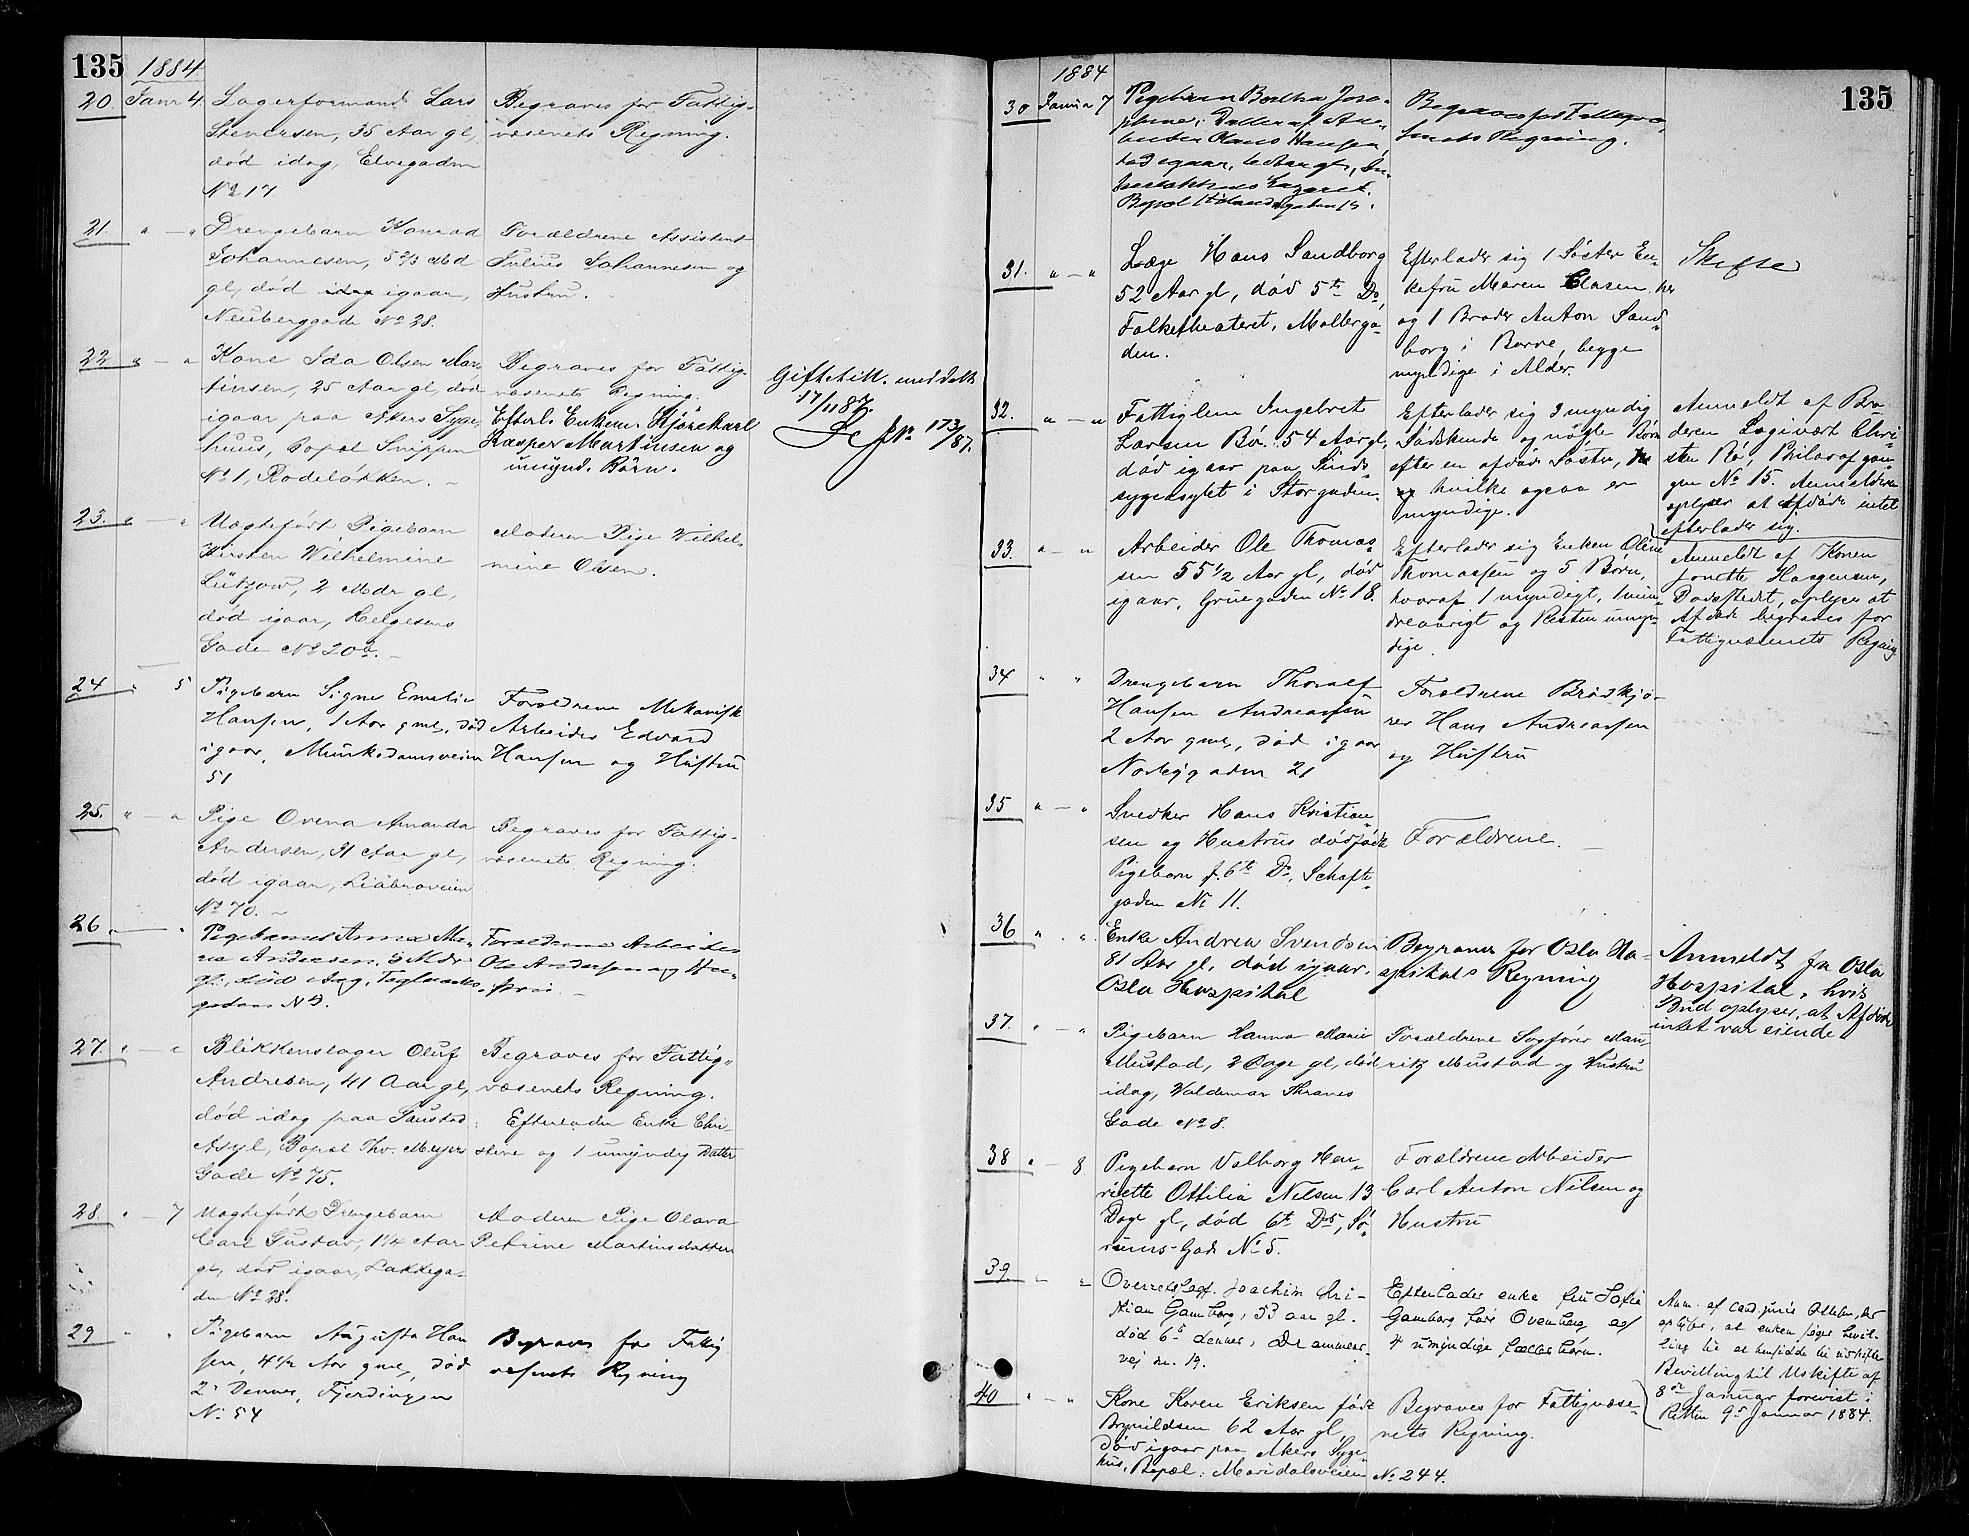 135
1884
20 Janr 4 Lagerformand Lars
Steversen, 35 Aar gl,
død idag, Elvegaden
No 17.
Begraves for Fattig-
væsenets Regning.
21 " — " Drengebarn Konrad
Johannesen, 5 2/3 Md
gl, død igaar,
Neuberggade No 28.
Forældrene Assistent
Julius Johannesen og
Hustru.
22 " — " Kone Ida Olsen Mar-
tinsen, 25 Aar gl, død
igaar paa Akers Syge-
huus, Bopæl Snippen
No 1, Rodeløkken.
Begraves for Fattig-
væsenets Regning.
Efterl. Enkem. Kjørekarl
Kasper Martinsen og
umynd. Børn.
Giftetill. meddelt
17/11 87.
173/87.
23. " — " Uægtefødt Pigebarn
Kirsten Wilhelmine
Lützow, 2 Mdr gl,
død igaar, Helgesens
Gade No 20a.
Moderen Pige Wilhel-
mine Olsen.
24 " 5 Pigebarn Signe Emelie
Hansen, 1 Aar gml, død
igaar, Munkedamsveien
51
Forældrene Mekanisk
Arbeider Edvard
Hansen og Hustru
25. " — " Pige Ovena Amanda
Andersen, 31 Aar gl,
død igaar, Liabroveien
No 70.
Begraves for Fattig-
væsenets Regning.
26 " — " Pigebarnet Anna Ma-
rie Andersen, 5 Mdr
gl., død dag, Teglværks-
gaden No 9.
Forældrene Arbeider
Ole Andersen og Hu-
stru
27. " — " Blikkenslager Oluf
Andresen, 41 Aar gl,
død idag paa Gaustad
Asyl, Bopæl Thv. Meyers
Gade No 75.
Begraves for Fattig-
væsenets Regning.
Efterlader Enke Chri-
stine og 1 umyndig Datter
28 " — 7 Uægtefødt Drengebarn
Carl Gustav, 1 1/4 Aar
gl, død igaar, Lakkega-
den No 28.
Moderen Pige Olava
Petrine Martinsdatter
29 " " Pigebarn Augusta Han
sen, 4 1/2 Aar gml, død
2 Dennes, Fjerdingen
No 54
Begraves for Fattig
vesenets Regning
135
1884
30 Janua 7 Pigebarn Bertha Jose-
phine, Datter af Ar-
beider Hans Hansen,
død igaar, 6 Aar gl,
Lazaret.
Begraves for Fattigvæ-
senets Regning.
31. " — " Læge Hans Sandborg
52 Aar gl, død 5te Ds,
Folketheateret, Møllerga-
den.
Efterlader sig 1 Søster En-
kefru Maren Clasen her
og 1 Broder Anton Sand-
borg i Borre, begge
myndige i Alder.
Skifte
32. " — " Fattiglem Ingebret
Larsen Bø. 54 Aar gl,
død igaar paa Sinds-
sygeasylet i Storgaden.
Efterlader sig 3 myndig
Sødskende og nogle Børn
efter en afdød Søster,
hvilke ogsaa er
myndige.
Anmeldt af Bro-
deren Logivært Chri-
sten Bø, Pilarafgan-
gen No 15. Anmelderen
oplyser at afdøde intet
efterlader sig.
33. " — " Arbeider Ole Thomas-
sen 55 1/2 Aar gl, død
igaar, Gruegaden No 18.
Efterlader sig Enken Oline
Thomassen og 5 Børn,
hvoraf 1 myndigt, 1 min-
dreaarigt og Resten umyn-
dige.
Anmeldt af Konen
Jonette Haagensen,
Dødsstedet, oplyser at
Afdøde begraves for
Fattigvæsenets Regning
34 " " Drengebarn Thoralf
Hansen Andreassen
2 Aar gml, død igaar
Norbygaden 21
Forældrene Brødkjø-
rer Hans Andreassen
og Hustru
35 " — " Snedker Hans Kristian-
sen og Hustrus dødfødt
Pigebarn f. 6te Ds, Schafte-
gaden No 11.
Forældrene.
36 " . " Enke Andrea Svendsen
81 Aar gl, død igaar,
Oslo Hospital
Begraves for Oslo Ho-
spitals Regning
Anmeldt fra Oslo
Hospital, hvis
Bud oplyser, at Afdøde
intet var eiende
37. " — " Pigebarn Hanna Marie
Mustad, 2 Dage gl, død
idag, Valdemar Thranes
Gade No 8.
Forældrene Sagfører Mau-
ritz Mustad og Hustru
38 " — 8 Pigebarn Valborg Hen-
riette Ottilia Nilsen 13
Dage gl, død 6te Ds, Sø-
rums-Gade No 5.
Forældrene Arbeider
Carl Anton Nilsen og
Hustru
39 " " Overretssagf. Joachim Chri-
stian Gamborg, 53 aar gl.
død 6te dennes, Drammens-
vej n. 19.
Efterlader enke fru Sofie
Gamborg født Ovenberg og
4 umyndige fællesbørn.
Anm. af cand. juris Ottesen, der
oplyser, at enken søger bevil-
ling til at hensidde i uskifte
Bevilling til Uskifte af
8de Januar forevist i
Retten 9de Januar 1884.
40 " — " Kone Karen Eriksen født
Brynildsen 62 Aar gl
død igaar paa Akers Syge-
hus, Bopæl: Maridalsveien No 244.
Begraves for Fattigvæse-
nets Regning.